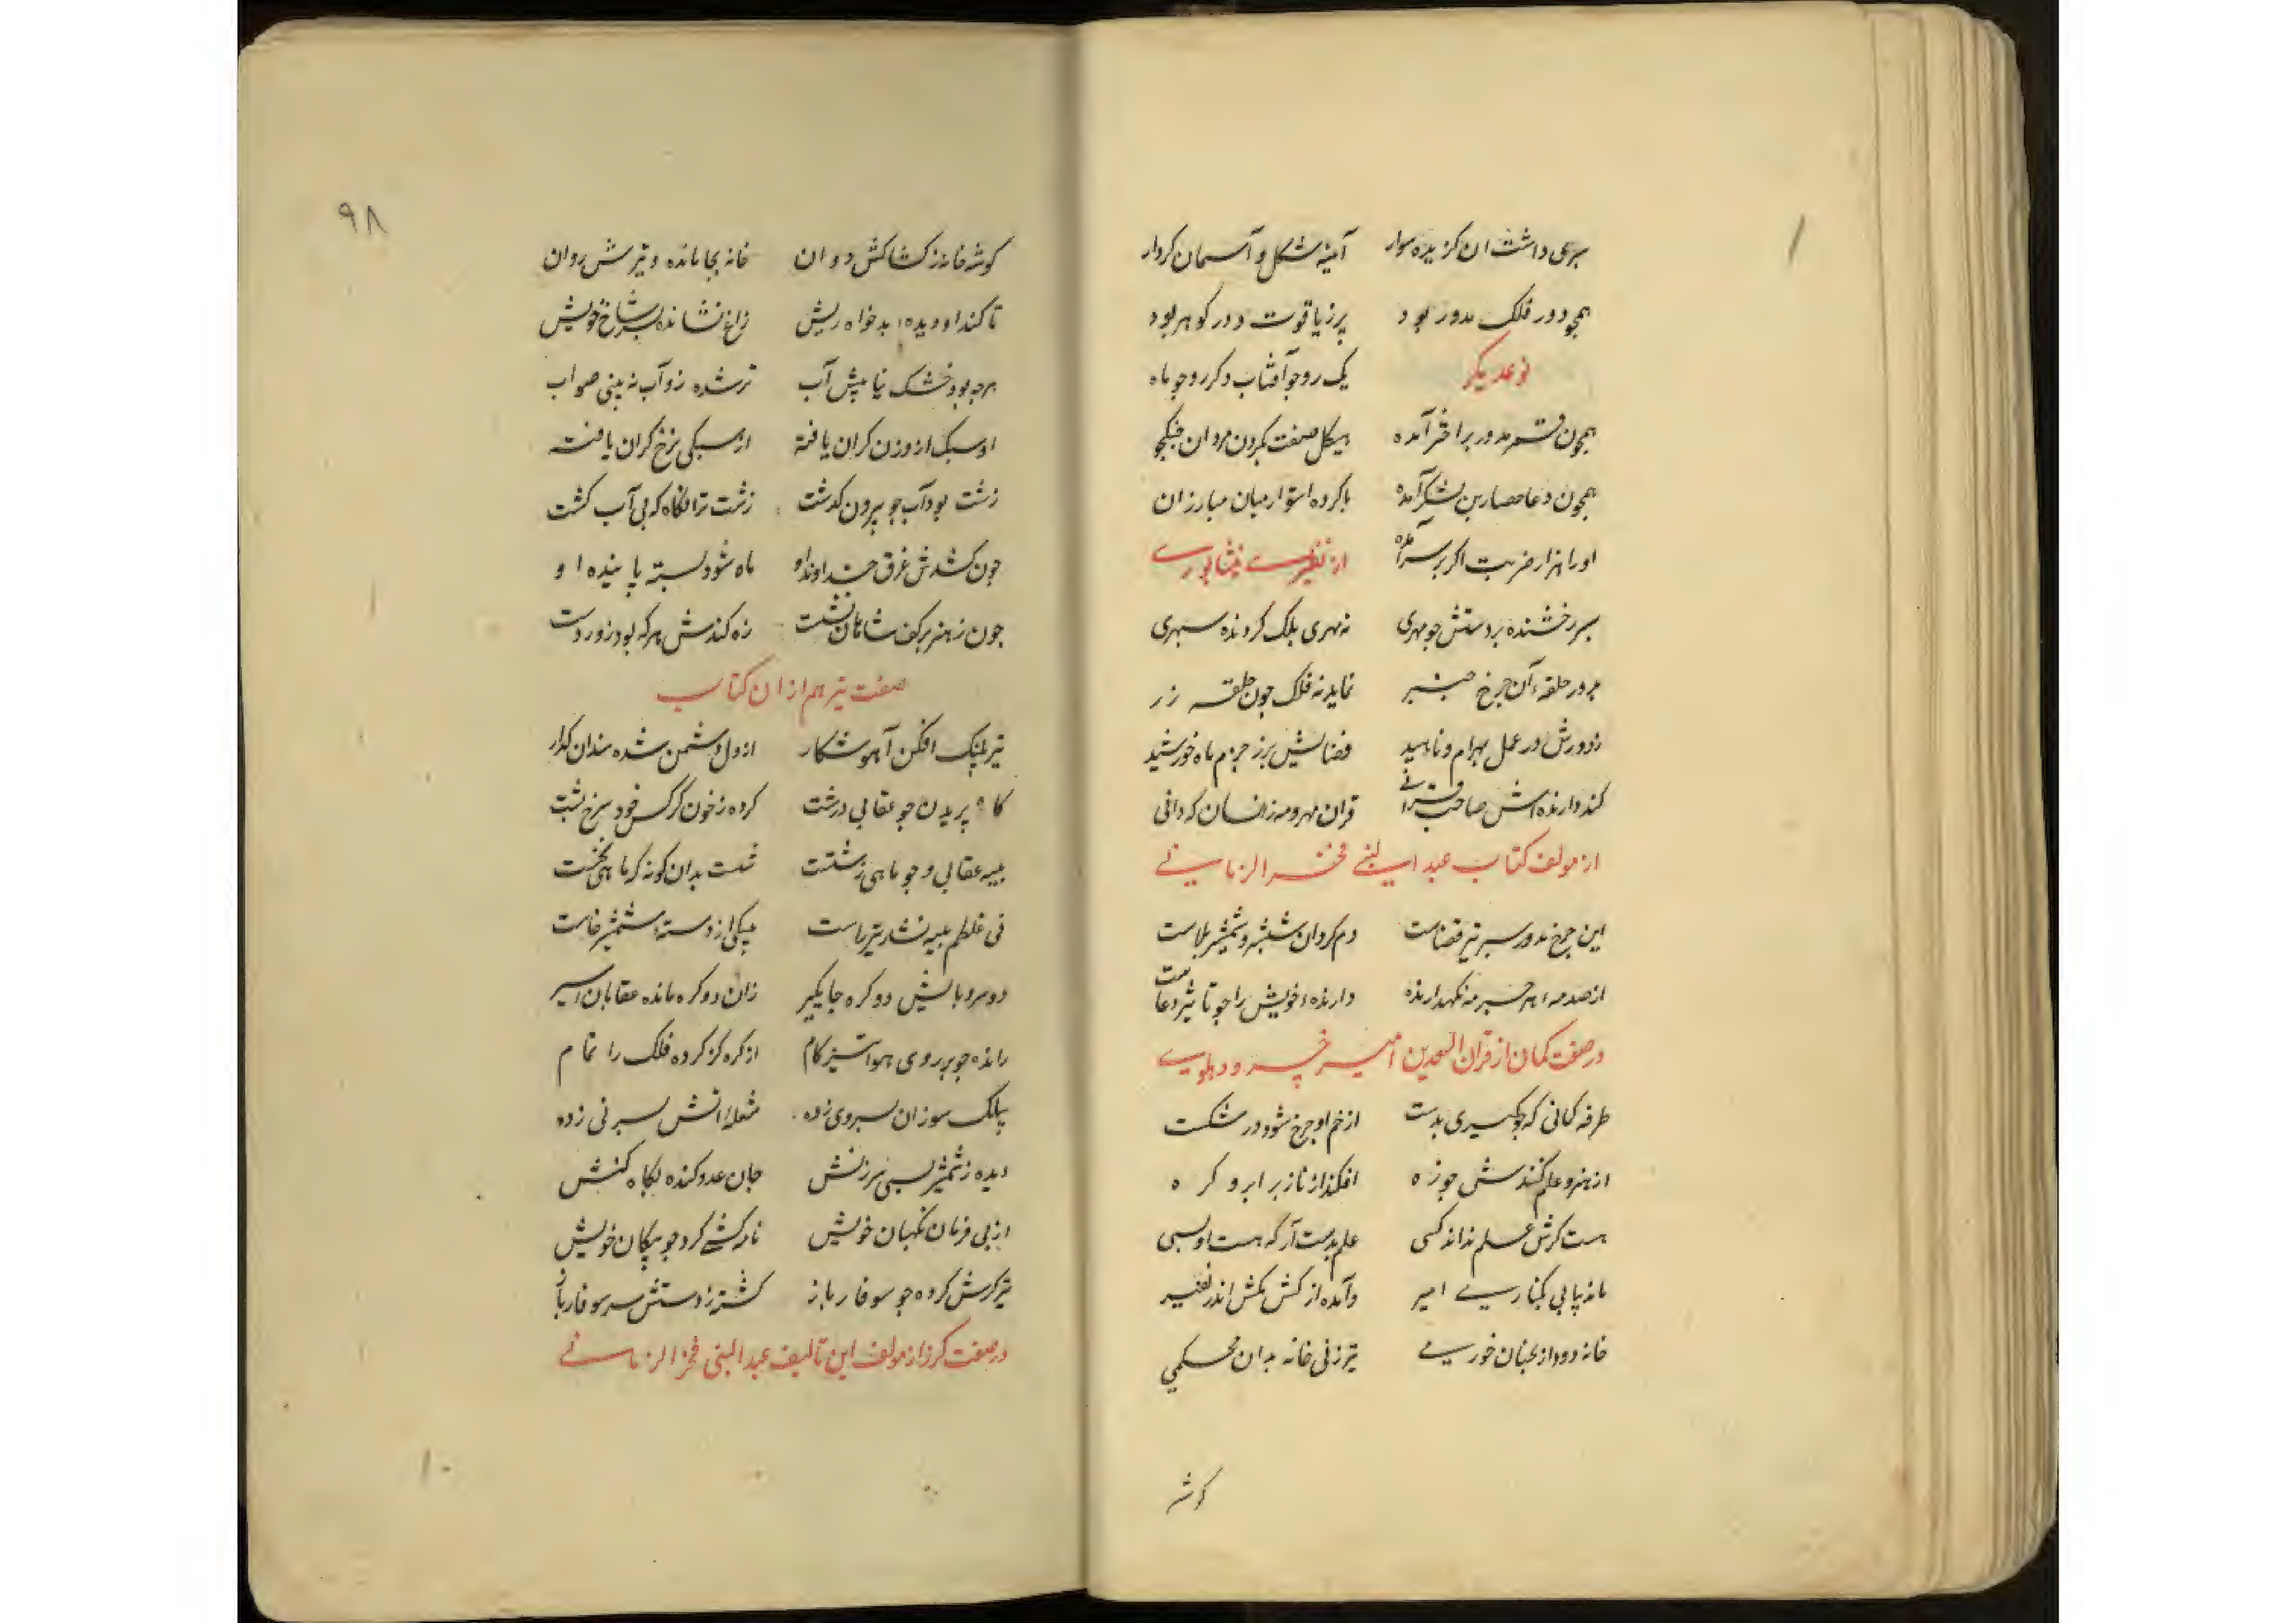 سپری داشت ان کزیده سوار آینه شکل و آسمان کردار
همچو دور فلک مدور بود پر ز یاقوت و در و کوهر بود
نوعدیکر یک رو چو آفتاب و دکر رو چو ماه
همچون قمر مدور بر اختر آمده هیکل صفت بکردن مردان جنکجو
همچون دعا حصار بن لشکر آمده پا کرده استوار میان مبارزان
او را هزار ضربت اکر بر سر آمده از نظیرے نیشاپورے
سپر رخشنده بر دستش جو مهری نه مهری بلک کردنده سپهری
در حلقهء آن جرخ جنبر نماید نه فلک جون حلقه زر
ز دورش در عمل بهرام و ناهید فضایش برز جرم ماه خورشید
کند دارنده اش صاحب قرانے قران مهر و مه زانسان که دانی
از مولف کتاب عبد النبے فخر الزمانے
این جرخ مدور سپر تیر قضاست دم کردان شش پر و شمشیر بلاست
از صدمهء هر حسر مه نکهدارنده دارندهء خویش را جو تاثیر دعاست
در صفت کمان از قران السعدین امیر خسرو دهلوے
طرفه کمانی که جو کیری بدست از خم او جرخ شود در شکست
از هنر و علم کنندش جو زه افکند از ناز بر ابرو کره
هست کرش علم نداند کسی علم بدست آر که هست او بسی
مانه پا بی کبنارے امیر وآمده از کش مکش اندر نفیر
خانه دو دارد بجنان خورمے تیر زنی خانه بدان محکمی
کوشه
۹۸
کوشه خانه ز کشاکش دوان خانه بجا مانده و تیرش روان
تا کند او دیدهء بد خواه ریش زاغ نشانده بسر شاخ خویش
هرجه بود خشک نیا پیش آب تر شده زو آب نه بینی صواب
او سبک از وزن کران یافته از سبکی نرخ کران یافته
زشت بود آب جو بیرون کدشت زشت تر انکاه که بی آب کشت
جون کشدش غرق خداوند او ماه شود بسته پا بنده او
جون ز هنر بر کف شاهان نشست زه کندش هر که بود زوردست
صفت تیر هم از ان کتاب
تیر پلنک افکن آهو شکار از دل دشمن شده سندان کذار
کاه پریدن جو عقابی درشت کرده ز خون کرکس خود سرخ پشت
بیبه عقابی و جو ماهی ز شست شست بدان کونه که ماهی بخست
نی غلطم بیبه نشد تیر راست پیکی از دستهء شمشیر خاست
دو سر و بالش دو کره جایکیر زان دو کره مانده عقابان اسیر
رانده جو بر روی هوا تیز کام از کره کز کرده فلک را تمام
پیلک سوزان بسر وی زده شعله آتش بسر نی زده
دیده ز شمشیر بسی سرزنش جان عدو کنده بکاه کنش
از پی فرمان نکهبان خویش نامه کشے کرد جو پیکان خویش
تیرکرش کرده جو سوفار باز کشته ز دستش سر سوفار باز
در صفت کرز از مولف این تالیف عبد النبی فخر الزمانے